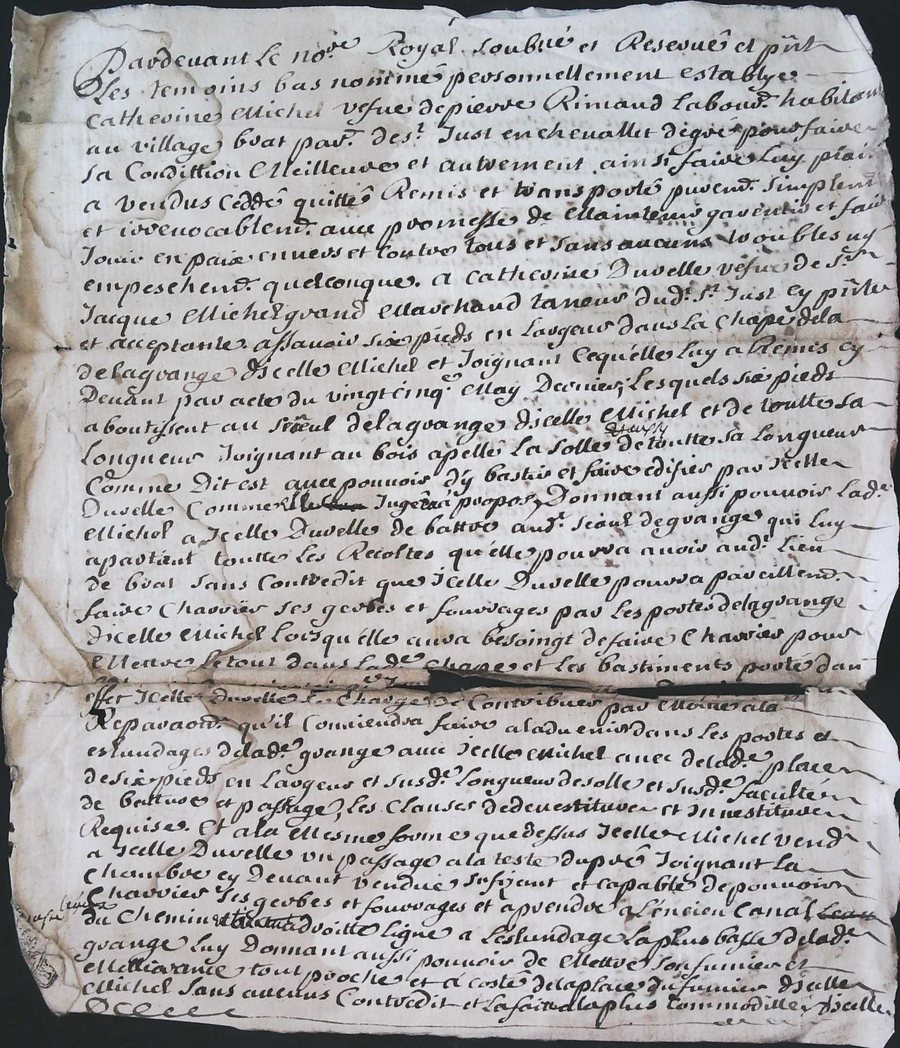 Pardevant Le no.re Royal soubné et Reservé et pñt
Les temoins bas nommé personnellement establye
Catherine Michel vefve de pierre Rimaud Labour.r habitant
au village brat par.e de s.t Just en chevallet degré pour faire
sa Condittion Meilleure et autrement ainsi faire Luy plai
a vendus Ceddé quitté Remis et transporté purem.t simplem.t
et irrevocablem.t avec promesse de Maintenir garentir et faire
Jouir en paix envers et Contre tous et sans aucuns troubles ny
empeschem.t quelconque. a Catherine Duvelle vefve de s.r
Jacque Michel grand Marchand taneur dud.t s.t Just Cy pñte
et acceptante assavoir six pieds en Largeur dans La Chape dela
delagrange dicelle Michel et Joignant Cequ'elle Luy a Remis Cy
Devant par acte du vingt cinq.e May Dernier, Lesquels six pieds
aboutissent au seul delagrange dicelle Michel et de toutte sa
Longueur Joignant au bois apellé La solle de toutte sa Longueur
Comme Dit est avec pouvoir d'y bastir et faire edifier par Icelle
Duvelle Comme Jugera a propos, Donnant aussi pouvoir Lad.e
Michel a Icelle Duvelle de battre aud.t seoul degrange qui Luy
apartient touttes Les Recoltes qu'elle pourra avoir aud.t Lieu
de brat sans Contredit que Icelle Duvelle pourra pareillem.t
faire Charrier ses gerbes et fourrages par Les portes delagrange
dicelle Michel Lors qu'elle aura besoingt de faire Charrier pour
Mettre Le tout dans Lad.e Chape et Les bastiments porté dan
effet Icelle Duvelle de Contribuer par Moitié a la
Reparaon.s qu'il Conviendra faire a ladvenir dans Les portes et
estundages delad.e grange avec Icelle Michel avec delad.e place
de six pieds en Largeur et susd.e Longueur de solle et susd.e faculté
de battre et passage, Les Clauses de devestiture et Investiture
Requise. Et a la Mesme forme que dessus Icelle Michel vend
a Icelle Duvelle un passage a la teste dupré Joignant La
Chambre Cy Devant vendue sufizant et Capable de pouvoir
Charrier ses gerbes et fourrages et aprendre a L'encien Canal
du Chemin droitte Ligne a Lestundage La plus basse delad.e
grange Luy Donnant aussi pouvoir de Mettre son fumier et
tout proche et a Costé delaplace du fumier dicelle
Michel sans aucuns Contredit et La faire a la plus Commodité dicelle